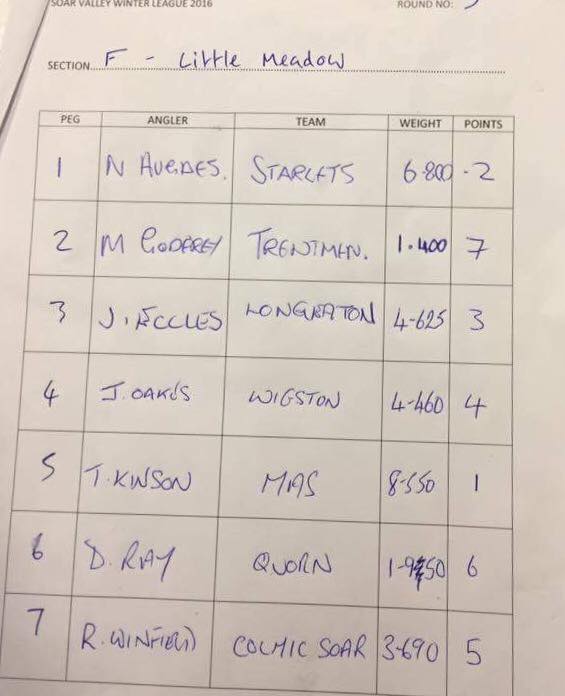 SOAR VALLEY WINTER LEAGUE 2016 ROUND NO:
SECTION F - Little Meadow
PEG ANGLER TEAM WEIGHT POINTS
1 N HUGHES. STARLETS 6-800 -2
2 M GODFREY TRENTMEN. 1.400 7
3 J. ECCLES LONGEATON 4-625 3
4 J. OAKES WIGSTON 4-460 4
5 T. KINSON MAS 8-550 1
6 D. RAY QUORN 6
7 R. WINFIELD COLMIC SOAR 3-690 5